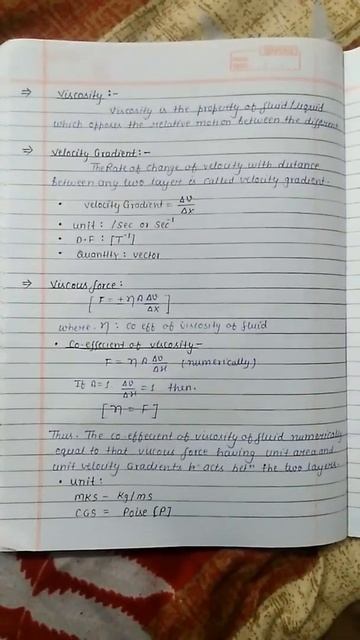 ⇒ Viscosity :-
Viscosity is the property of fluid/liquid
which opposes the relative motion between the different
⇒ Velocity Gradient :-
The Rate of change of velocity with distance
between any two layers is called velocity gradient.
• velocity Gradient = ΔV/ΔX
• unit : /sec or sec⁻¹
• D.F : [T⁻¹]
• Quantity : vector
⇒ Viscous force :
[F = +η A ΔV/ΔX]
where. η : co eff of viscosity of fluid
• Co-effecient of viscosity -
F = η A ΔV/ΔX (numerically)
If A=1 ΔV/ΔX = 1 then.
[η = F]
Thus. The co effecient of viscosity of fluid numerically
equal to that viscous force having unit area and
unit velocity Gradients acts betn the two layers.
• unit :
MKS - Kg/ms
CGS = Poise [P]